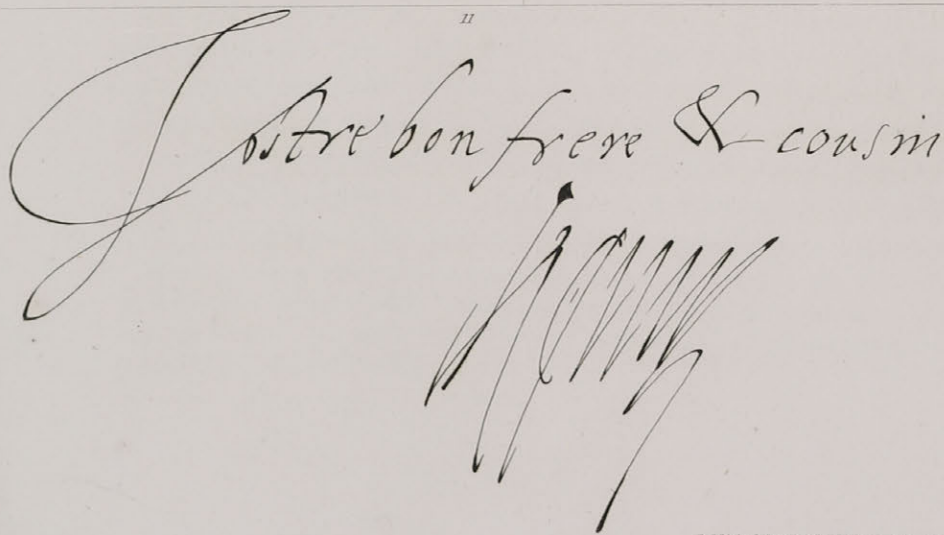 11
Vostre bon frere & cousin
Henry